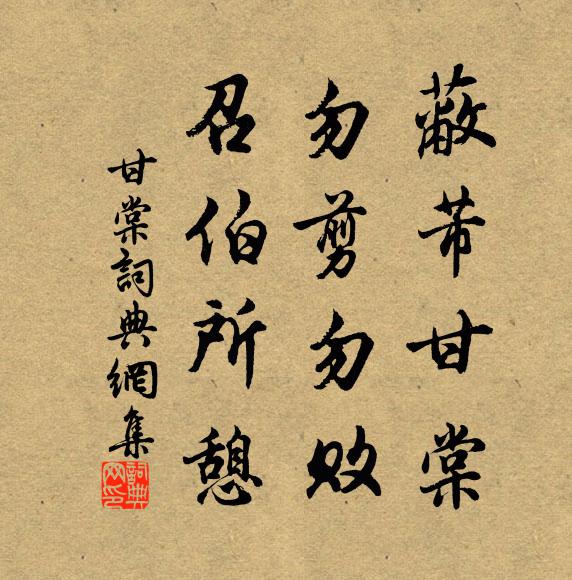 蔽芾甘棠
勿剪勿敗
召伯所憩
甘棠詞典網集
詞典网印